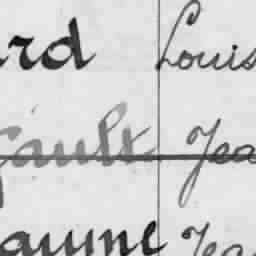 ard Louis
gault Jea
aume Jea